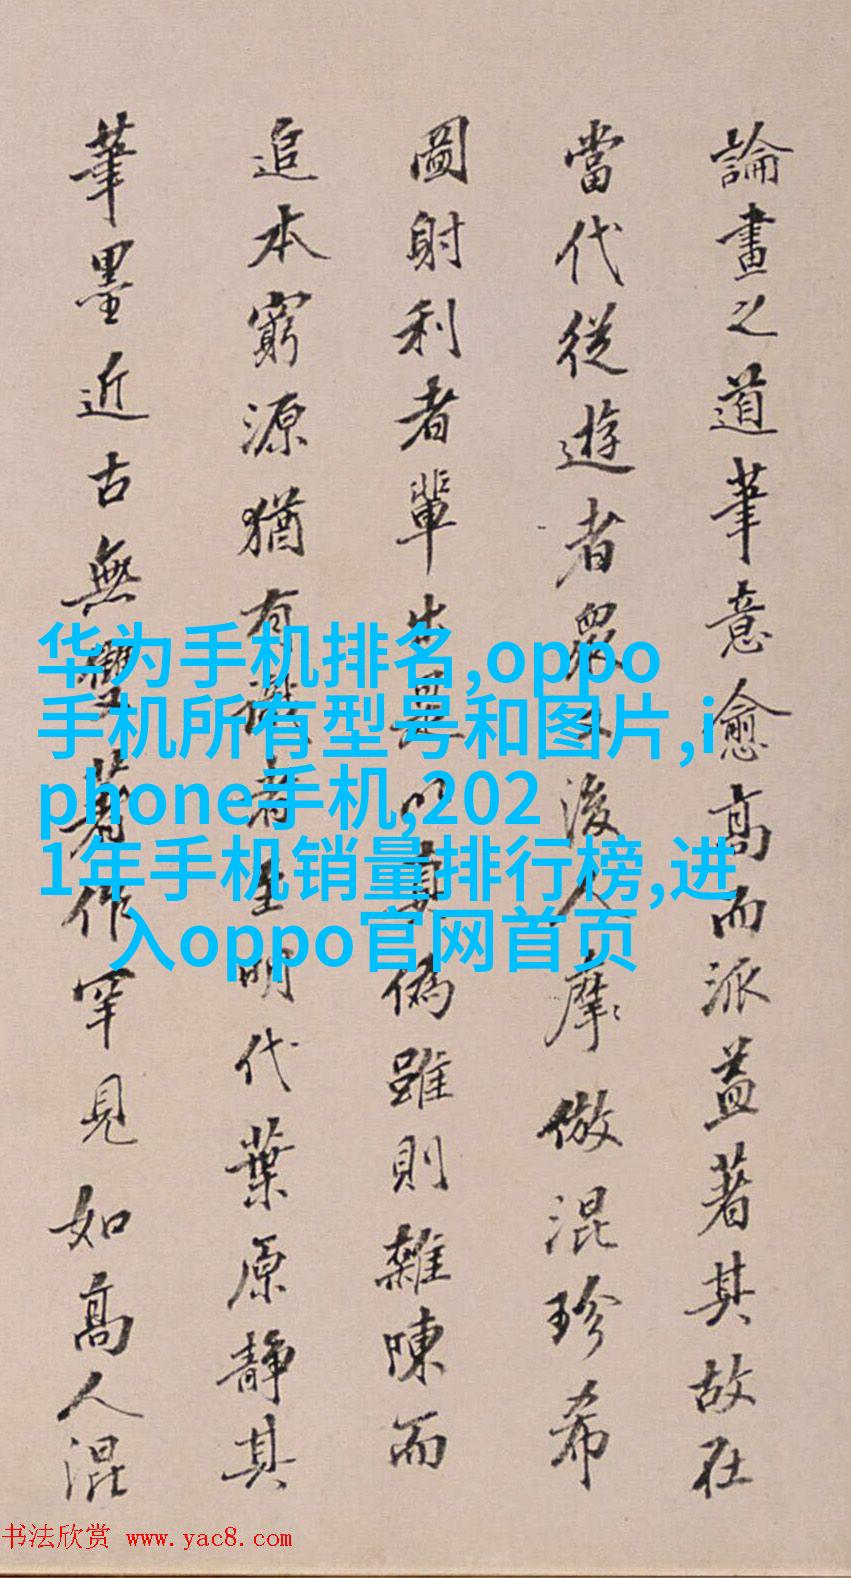 論畫之道筆意愈高而派益著其故在
當代從遊者眾又後人摩倣混珍希
圖射利者輩出是以真偽雖則雜陳而
追本窮源猶有識者在明代葉原靜其
筆墨近古無雙著作罕見如高人混
华为手机排名,oppo
手机所有型号和图片,i
phone手机,202
1年手机销量排行榜,进
入oppo官网首页
书法欣赏 www.yac8.com